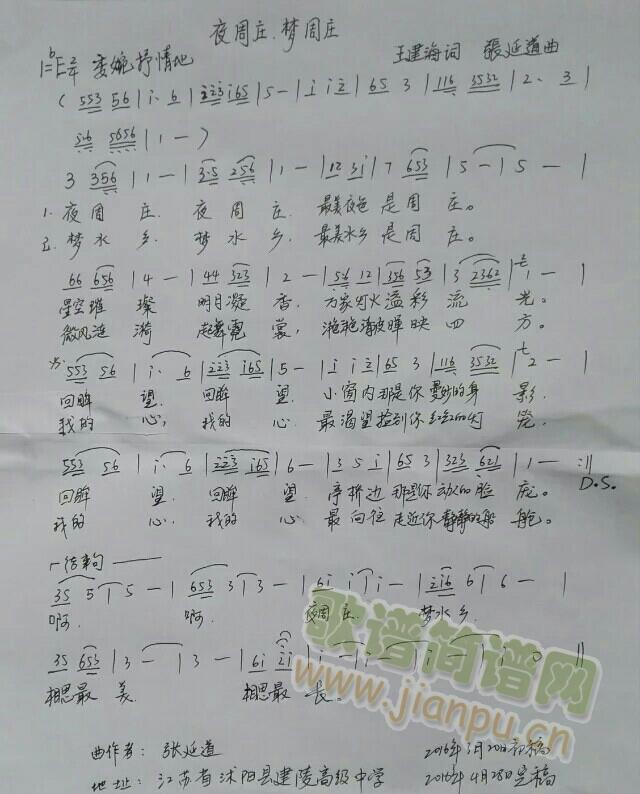 夜周庄.梦周庄
1=ᵇE 2/4 委婉抒情地 王建海词 張延道曲
( 553 56 | i· 6 | 223 i65 | 5 - | i i 2 | 65 3 | 116 3532 | 2· 3 |
56 5656 | 1 - )
3 356 | 1 - | 3·5 256 | 1 - | 12 3i | 7 653 | 5 - | 5 - |
1. 夜周庄. 夜周庄. 最美夜色是周庄。
2. 梦水乡. 梦水乡, 最美水乡是周庄。
66 656 | 4 - | 44 323 | 2 - | 56 12 | 356 53 | 3 2362 | 1 - |
星空璀璨 明月凝香, 万家灯火溢彩流光。
微风涟漪 霓裳, 滟滟清波晖映四方。
553 56 | i· 6 | 223 i65 | 5 - | i i 2 | 65 3 | 116 3532 | 2 - |
回眸望. 回眸望. 小窗内那是你曼妙的身影.
我的心, 我的心. 最渴望捡到你的灯
553 56 | i· 6 | 223 i65 | 6 - | 3 5 i | 65 3 | 323 621 | 1 - :||
D.S.
回眸望. 回眸望. 亭桥边那是你动人的脸庞。
我的心, 我的心. 最向往走近你静静的船舱。
结束句
35 5 | 5 - | 653 3 | 3 - | 6i i | i - | 2i6 6 | 6 - |
啊. 啊. 夜周庄. 梦水乡.
35 653 | 3 - | 3 - | 6i 2i | i - | i - | i - | i 0 ||
相思最美. 相思最长。
歌谱简谱网
www.jianpu.cn
曲作者: 张延道 2016年3月20日初稿
地址: 江苏省沭阳县建陵高级中学 2016年4月28日定稿